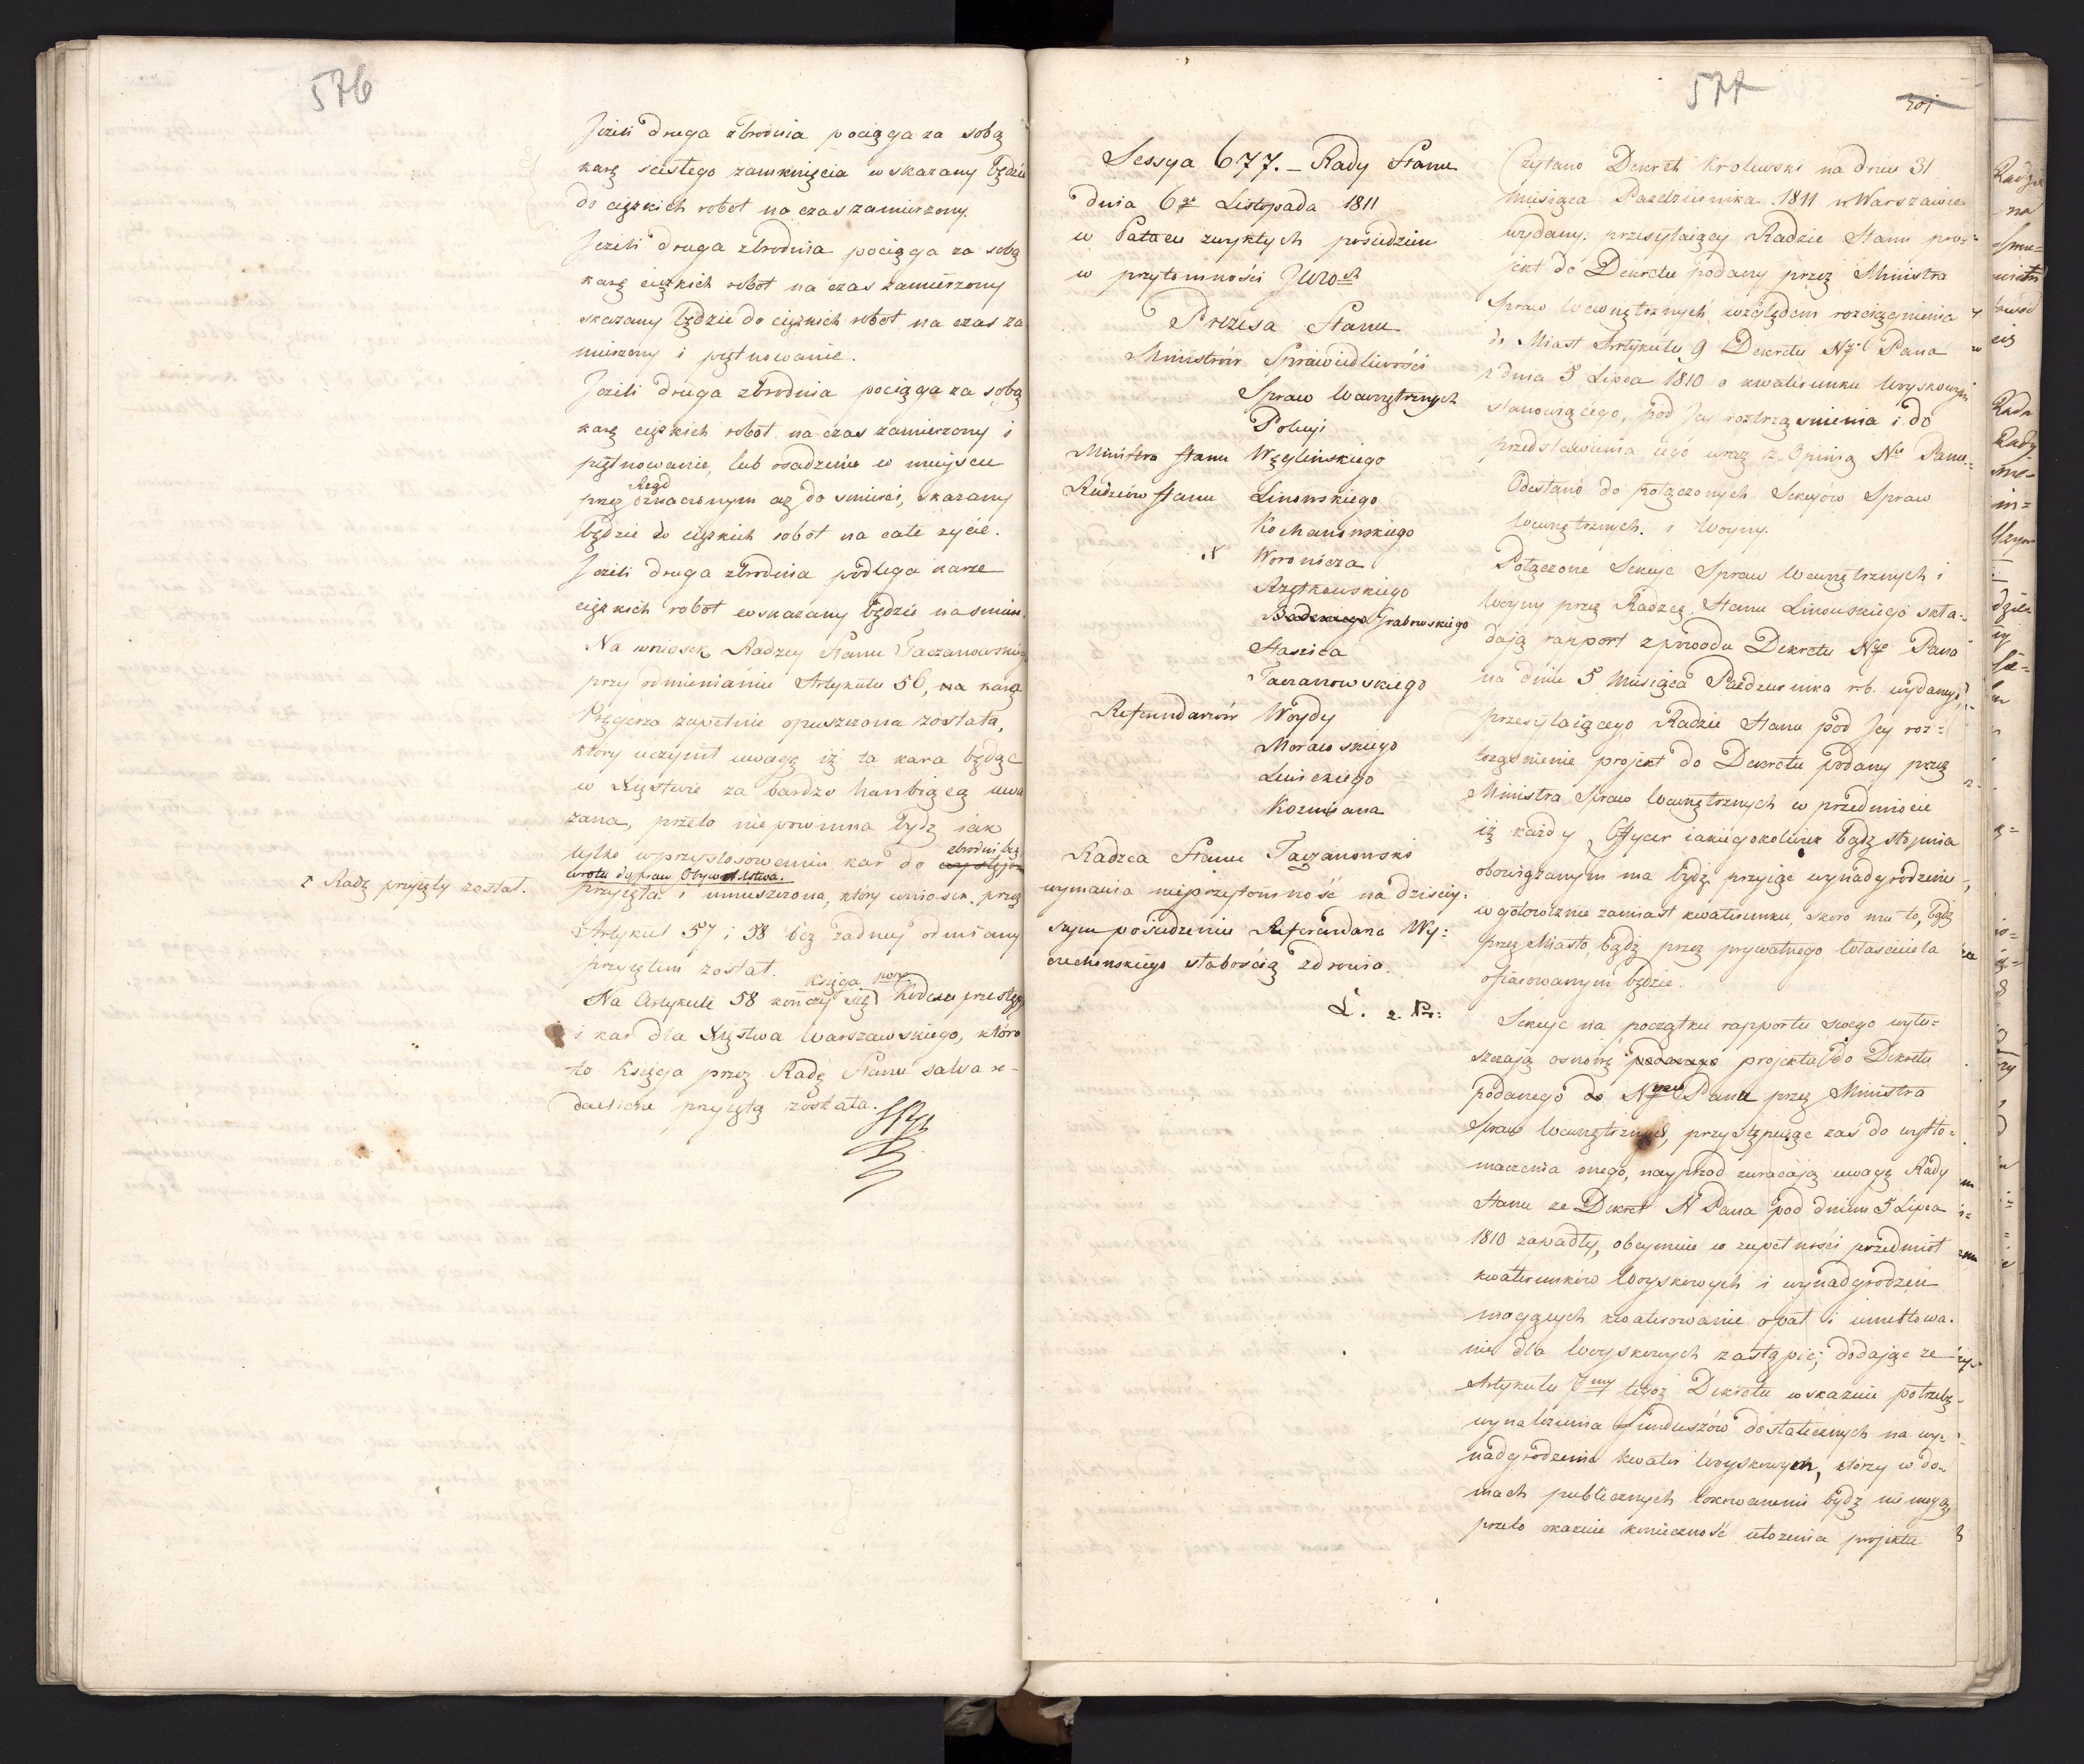 576
Jeżeli druga zbrodnia pociąga za sobą
karę scisłego zamknięcia wskazany będzie
do cięzkich robot na czas zamierzony.
Jeżeli druga zbrodnia pociąga za sobą
karę cięzkich robot na czas zamierzony
skazany będzie do cięzkich robot na czas za
mierzony i piętnowanie.
Jeżeli druga zbrodnia pociąga za sobą
karę cięzkich robot na czas zamierzony i
piętnowanie, lub osadzenie w mieyscu
przez Rząd oznaczonym aż do smierci, skazany
będzie do cięzkich robot na całe zycie.
Jeżeli druga zbrodnia podlega karze
cięzkich robot wskazany będzie na smierć.
Na wniosek Radzcy Stanu Taczanowskiego
przy odmienianiu Artykułu 56, na karę
Pręgierza zupełnie opuszczona została,
który uczynił uwagę iż ta kara będąc
w Xięstwie za bardzo hanbiącą uwa
zana, przeto niepowinna bydź iak
tylko w przystosowaniu kar do zbrodni bez
wrotu do praw Obywatelstwa.
przyięta i umieszczona, który wniosek przez
† Radę przyięty został.
Artykuł 57 i 58 bez żadney odmiany
przyiętem został.
Na Artykule 58 kończy się Księga Kodexu przestęp
i kar dla Xięstwa Warszawskiego, która
to Księga przez Radę Stanu salva re-
dactione przyiętą została.
577
301
Sessya 677. – Rady Stanu
dnia 6go Listopada 1811
w Pałacu zwykłych posiedzeń
w przytomności JWW
Prezesa Stanu
Ministrów Sprawiedliwości
Spraw Wewnętrznych
Policyi
Ministra Stanu Węglińskiego
Radzców Stanu Linowskiego
Kochanowskiego
Woronicza
Rzętkowskiego
Badeniego Grabowskiego
Staszica
Taczanowskiego
Referendarzów Woydy
Morawskiego
Lewickiego
Kozmiana
Radzca Stanu Taczanowski
wymawia nieprzytomność na dzisiey-
szym posiedzeniu Referendarza Wy-
czechowskiego słabością zdrowia.
Czytano Dekret Krolewski na dniu 31
Miesiąca Pazdziernika 1811 w Warszawie
wydany, przesyłaiący Radzie Stanu pro-
jekt do Dekretu podany przez Ministra
Spraw Wewnętrznych, względem rozciągnienia
do Miast Artykułu 9 Dekretu Nego Pana
z dnia 5 Lipca 1810 o kwaterunku Woyskowym
stanowiącego, pod Jey roztrząsnienia i do
przedstawienia iego wraz z Opinią Nu Panu.
Odesłano do połączonych Sekcyów Spraw
Wewnętrznych i Woyny.
Połączone Sekcye Spraw Wewnętrznych i
Woyny przez Radzcę Stanu Linowskiego skła-
daią rapport z powodu Dekretu Nego Pana
na dniu 5 Miesiąca Pazdziernika r.b. wydanego,
przesyłaiącego Radzie Stanu pod Jey roz-
trząsnienie projekt do Dekretu podany przez
Ministra Spraw Wewnętrznych w przedmiocie
iż każdy Officer iakiegokolwiek bądz stopnia
obowiązanym ma bydź przyiąć wynadgrodzenie
w gotowiznie zamiast kwaterunku, skoro mu to, bądz
przez Miasto, bądz przez prywatnego Właściciela
ofiarowanym będzie.
Sekcye na początku rapportu swego wyłu-
szczaią osnowę podanego projektu do Dekretu
podanego do Nego Pana przez Ministra
Spraw Wewnętrznych, przystępuiąc zaś do wytło-
maczenia onego, nayprzod zwracaią uwagę Rady
Stanu ze Dekret N Pana pod dniem 5 Lipca
1810 zapadły, obeymuie w zupełności przedmiot
kwaterunków Woyskowych i wynadgrodzeń
mogących kwaterowanie opał i umeblowa-
nie dla Woyskowych zastąpić; dodaiąc ze
Artykuły 7my tegoż Dekretu wskazuie potrzebę
wynalezienia Funduszów dostatecznych na wy-
nadgrodzenie kwater Woyskowych, którzy w do-
mach publicznych lokowanemi bydź nie mogą,
przeto okazuie konieczność ułożenia projektu